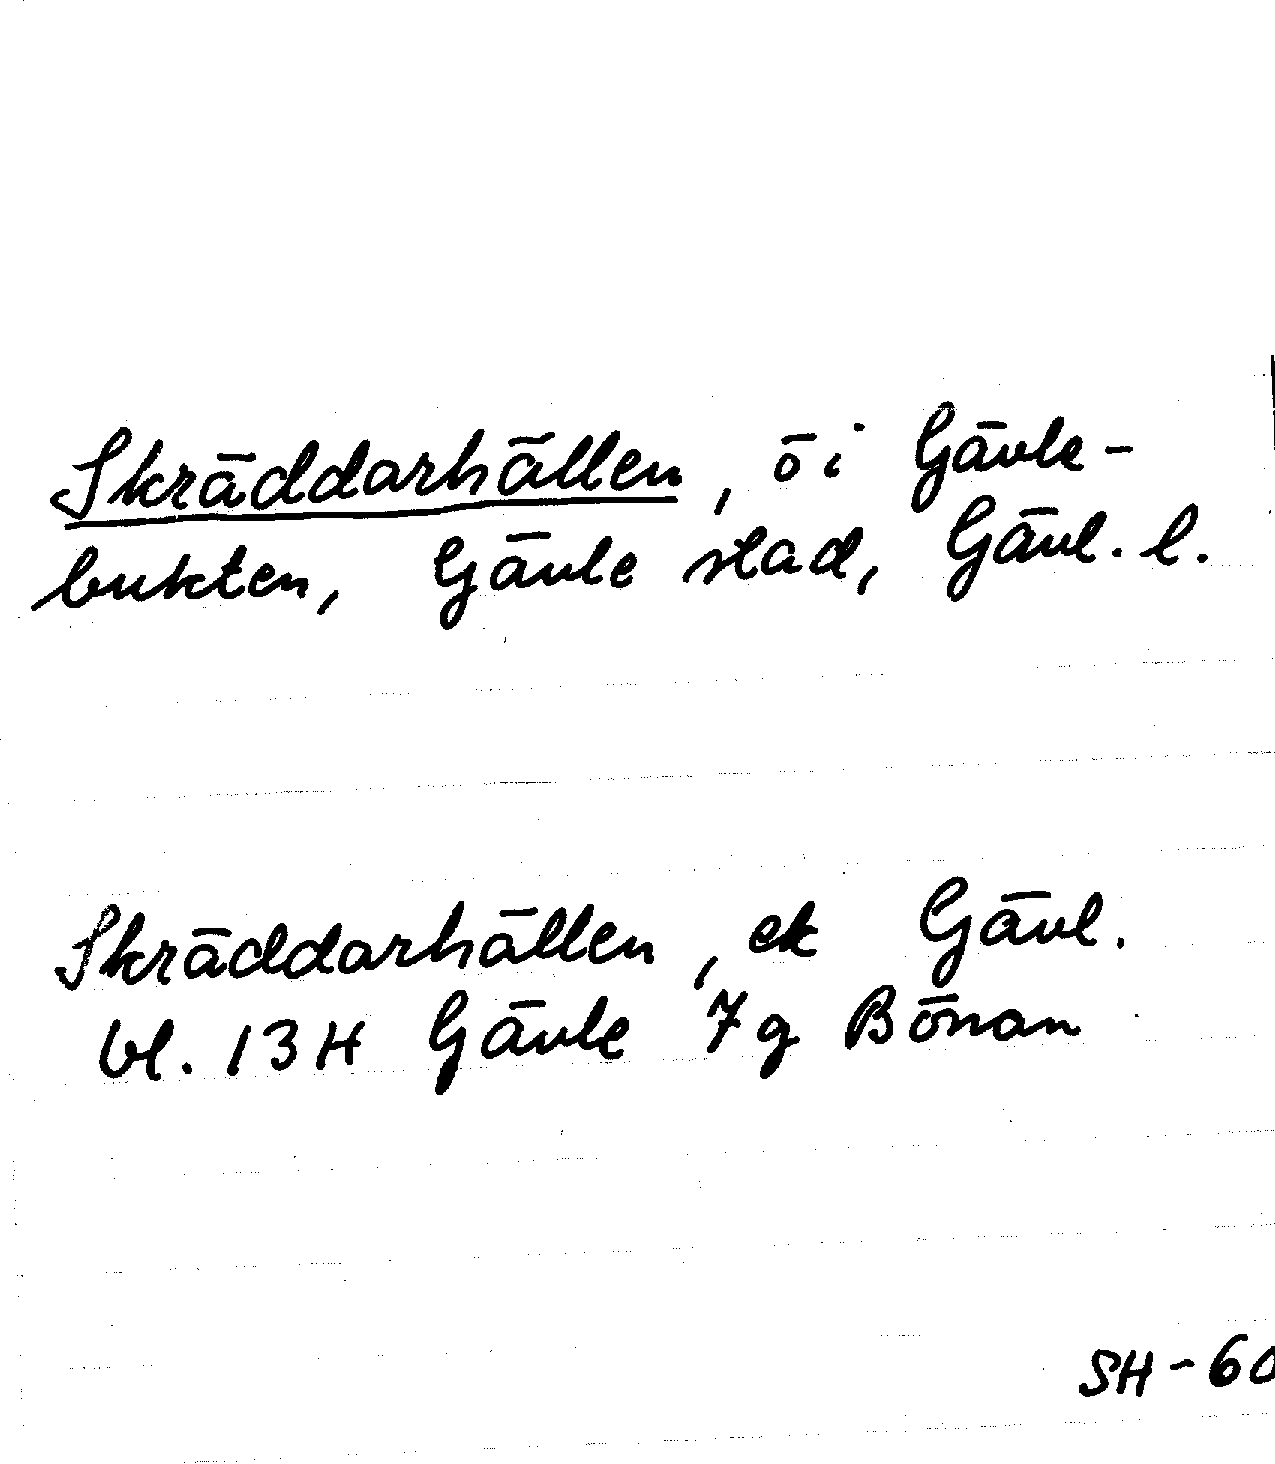 Skräddarhällen, ö i Gävle-
bukten, Gävle stad, Gävl. l.
Skräddarhällen, ek Gävl.
bl. 13H Gävle 7g Bönan
SH-60